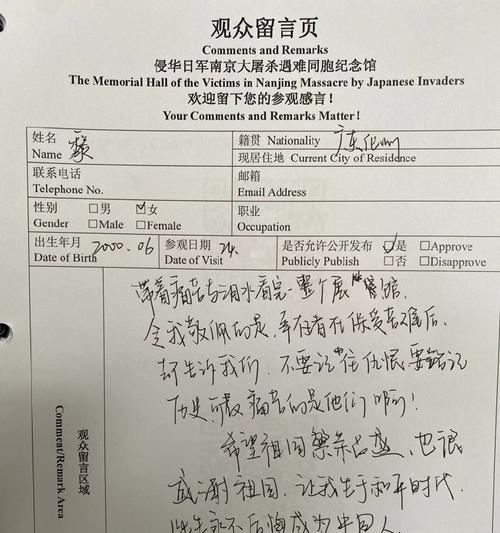 观众留言页
Comments and Remarks
侵华日军南京大屠杀遇难同胞纪念馆
The Memorial Hall of the Victims in Nanjing Massacre by Japanese Invaders
欢迎留下您的参观感言！
Your Comments and Remarks Matter!
姓名 Name
籍贯 Nationality 广东化州
现居住地 Current City of Residence
联系电话 Telephone No.
邮箱 Email Address
性别 Gender □男 Male ☑女 □Female
职业 Occupation
出生年月 Date of Birth 2000.06
参观日期 Date of Visit 24.
是否允许公开发布 Publicly Publish ☑是 □Approve □否 □Disapprove
观众留言区域
Comment/Remark Area
带着痛苦与泪水看完一整个展馆.
令我敬佩的是,幸存者在保受苦难后,
却告诉我们,不要记住仇恨,要铭记
历史可最痛苦的是他们啊！
希望祖国繁荣昌盛,也很
感谢祖国,让我生于和平时代,
此生永不后悔成为中国人.